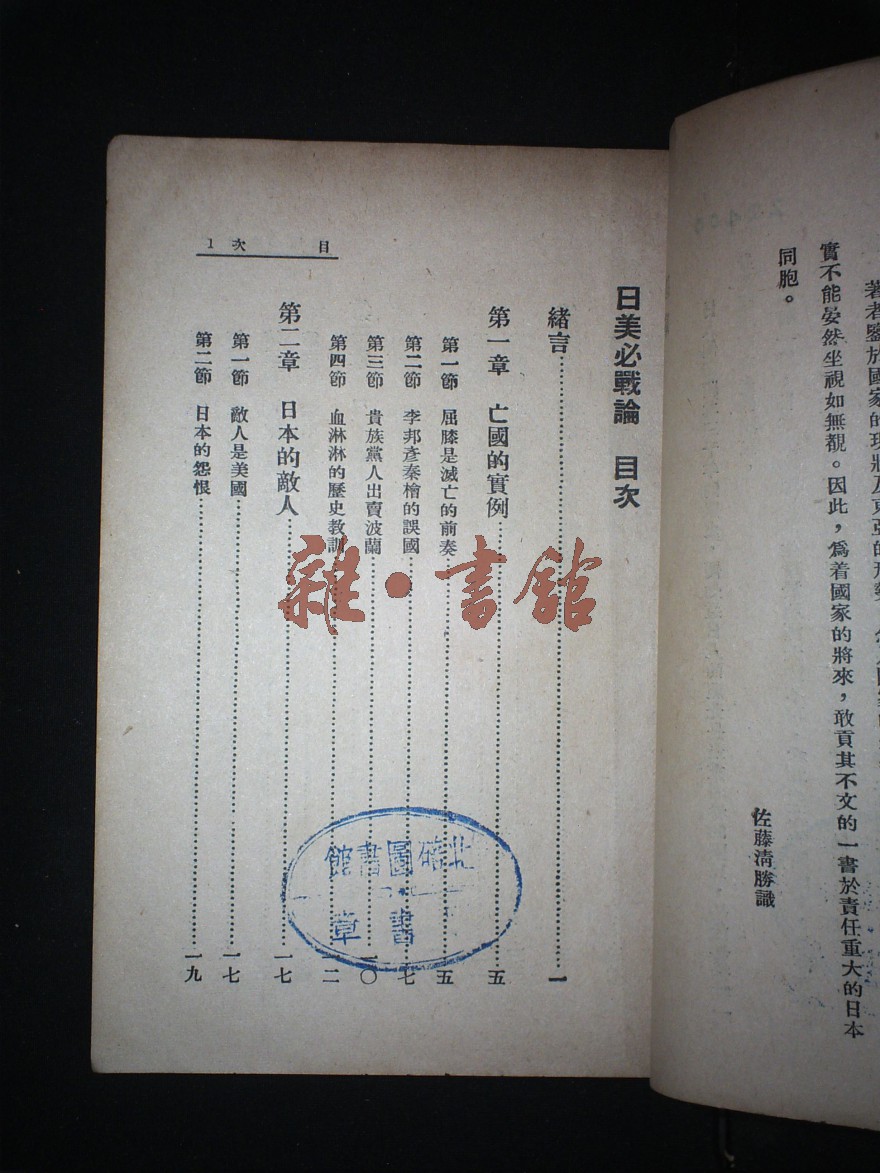 著者鑒於國家的現狀及東亞的形勢
實不能晏然坐視如無覩。因此，爲着國家的將來，敢貢其不文的一書於責任重大的日本
同胞。
佐藤淸勝識
目次 1
日美必戰論 目次
緒言……一
第一章 亡國的實例……五
第一節 屈膝是滅亡的前奏……五
第二節 李邦彥秦檜的誤國……七
第三節 貴族黨人出賣波蘭……一〇
第四節 血淋淋的歷史教訓……一二
第二章 日本的敵人……一七
第一節 敵人是美國……一七
第二節 日本的怨恨……一九
雜·書館
北碚圖書館
書章